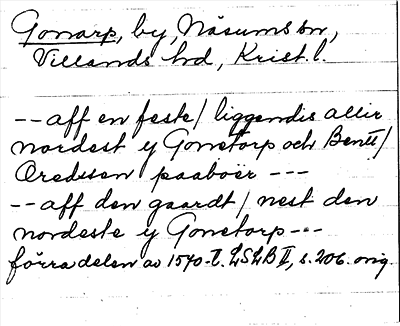 Gonarp, by, Näsums sn,
Villands hd, Krist. l.
-- aff en feste / liggendis aller
nordest y Gonetorp och Bentt /
Oredssen paaboer ---
-- aff den gaardt / nest den
nordeste y Gonetorp ---
förra delen av 1540-t. LSLB II, s. 206. orig.